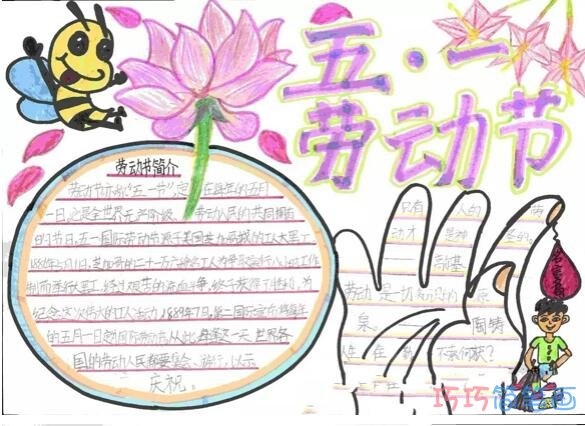 五·一
劳动节
劳动节简介
劳动节亦称"五一节"定在每年的五月
一日,它是全世界无产阶级、劳动人民的共同拥有
的节日,五一国际劳动节源于美国芝加哥城的工人大罢工
1886年5月1日,芝加哥的二十一万六千余工人为争取实行八小时工作
制而举行大罢工,经过艰苦的流血斗争,终于获得了胜利,为
纪念这次伟大的工人运动,1889年7月,第二国际宣布将每年
的五月一日定为国际劳动节,从此,每逢这一天世界各
国的劳动人民都要集会、游行,以示
庆祝。
只有 人的
动才 是神
圣的。
高基
劳动 是一切知识的 源
泉。 陶铸
人生在
巧巧简笔画